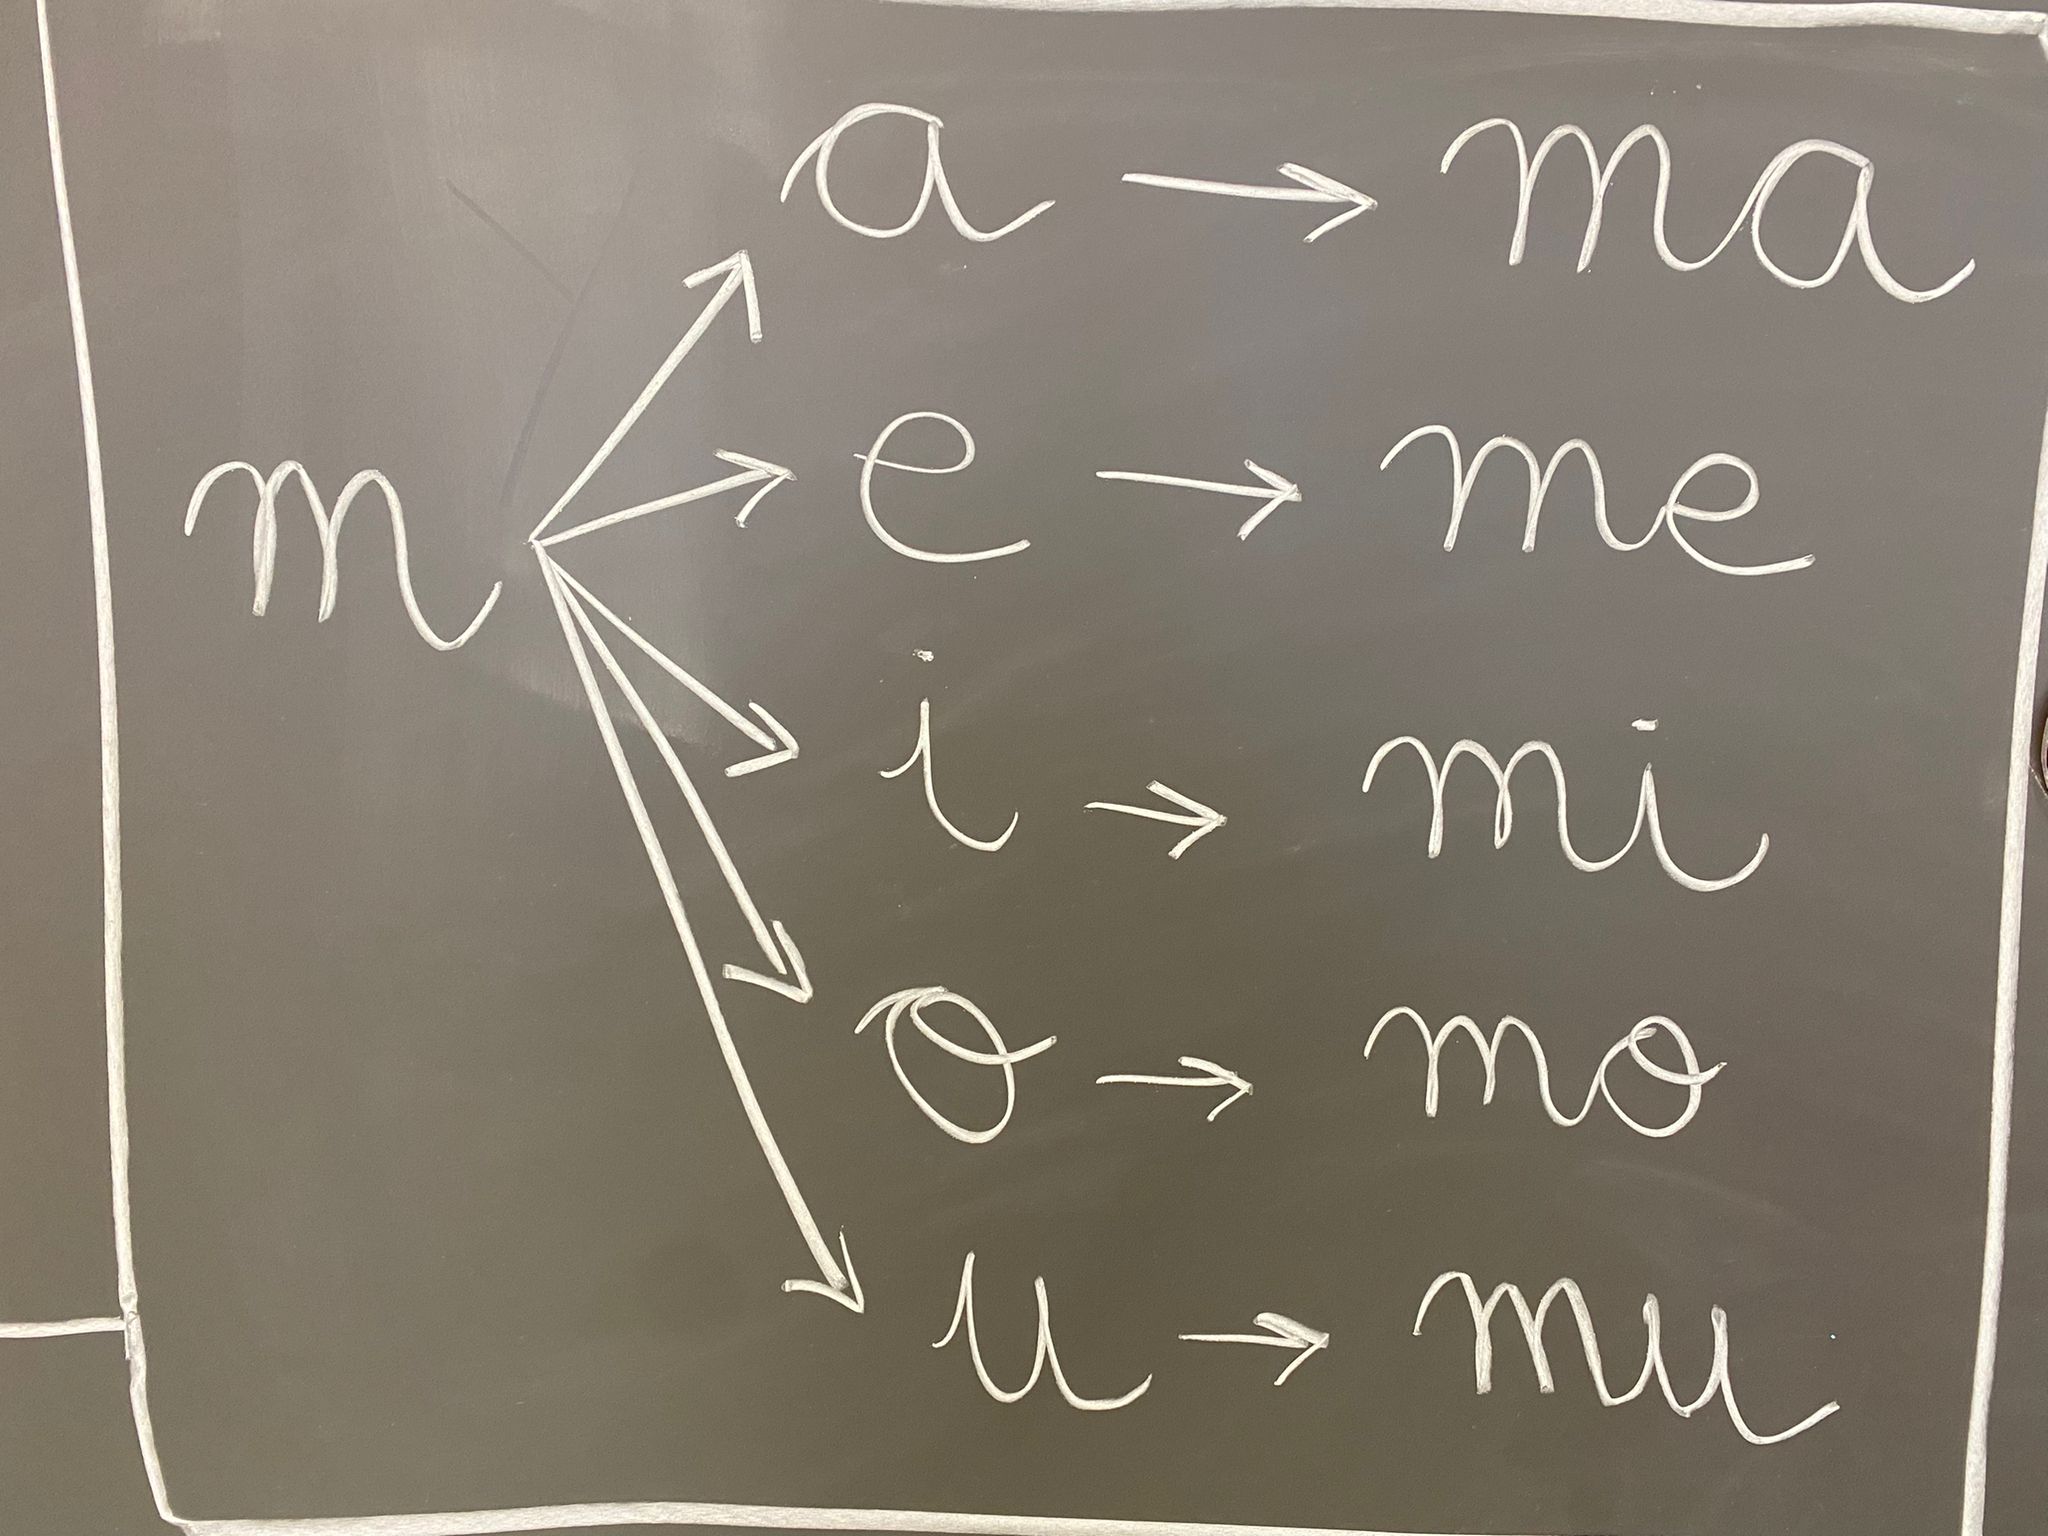 a → ma
m e → me
i → mi
o → mo
u → mu